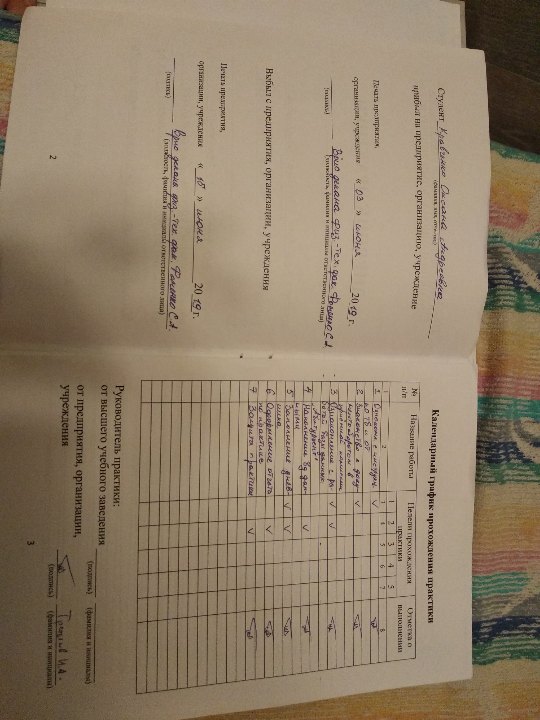 Студент Кравченко Оксана Андреевна
(фамилия, имя, отчество)
прибыл на предприятие, организацию, учреждение
Печать предприятия,
организации, учреждения « 03 » июня 2019 г.
Врио декана физ.-тех. фак. Фоменко С.А.
(подпись) (должность, фамилия и инициалы ответственного лица)
Выбыл с предприятия, организации, учреждения
Печать предприятия,
организации, учреждения « 16 » июня 2019 г.
Врио декана физ.-тех. фак. Фоменко С.А.
(подпись) (должность, фамилия и инициалы ответственного лица)
2
Календарный график прохождения практики
№ п/п Название работы Недели прохождения практики Отметка о выполнении
1 2 3 4 5
1 2 3 4 5 6 7 8
1 с инструкц.
по ТБ и ОТ
2 Знакомство с доку-
ментооборотом в
приемной комиссии
3 Ознакомление с ра-
ботой базы данных
„Абитуриент"
4 Наполнение бд дан-
ными
5 Заполнение днев-
ника
6 Оформление отчета
по практике
7 Защита практики
Руководитель практики:
от высшего учебного заведения
(подпись) (фамилия и инициалы)
от предприятия, организации,
учреждения
(подпись) (фамилия и инициалы)
3